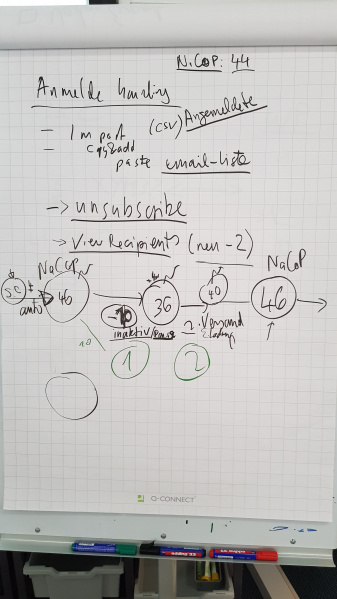 NiCoP: 44
Anmelde handling
- Import (CSV) Angemeldete
- copy&add
paste email-liste
-> unsubscribe
-> View Recipients (neu-2)
NaCoP
NaCoP
46
36
40
46
-10
inaktiv/pause
2. Versand
10
1
2
Q-CONNECT